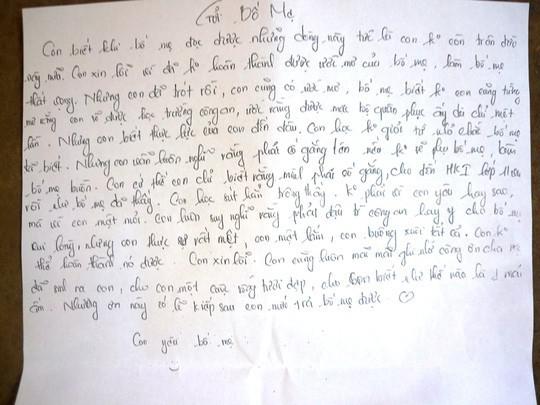 Gửi Bố Mẹ
Con biết khi bố mẹ đọc được những dòng này tức là con ko còn trên đời
này nữa. Con xin lỗi vì đã ko hoàn thành được ước mơ của bố mẹ, làm bố mẹ
thất vọng. Nhưng con đã trót rồi, con cũng có ước mơ, bố mẹ biết ko con cũng từng
mơ rằng con sẽ được học trường công an, ước rằng được mặc bộ quân phục ấy dù chỉ một
lần. Nhưng con biết thực lực của con đến đâu. Con học ko giỏi từ nhỏ chắc bố mẹ
đã biết. Nhưng con luôn luôn nghĩ rằng phải cố gắng lên nếu ko sẽ phụ bố mẹ, làm
bố mẹ buồn. Con cứ thế con chỉ biết rằng mình phải cố gắng, cho đến HKI lớp
rồi như bố mẹ đã thấy. Con học sút hẳn trông thấy. Ko phải vì con yêu hay sao
mà vì con mệt mỏi. Con luôn suy nghĩ rằng phải đậu trường công an hay y cho bố mẹ
vui lòng, nhưng con thực sự rất mệt, con mệt lắm, con buông xuôi tất cả. Con ko
thể hoàn thành nó được. Con xin lỗi. Con cũng luôn mãi mãi ghi nhớ công ơn cha mẹ
đã sinh ra con, cho con một cuộc sống tươi đẹp, cho con biết như thế nào là 1 mái
ấm. Nhưng ơn này có lẽ kiếp sau con mới trả bố mẹ được
Con yêu bố mẹ